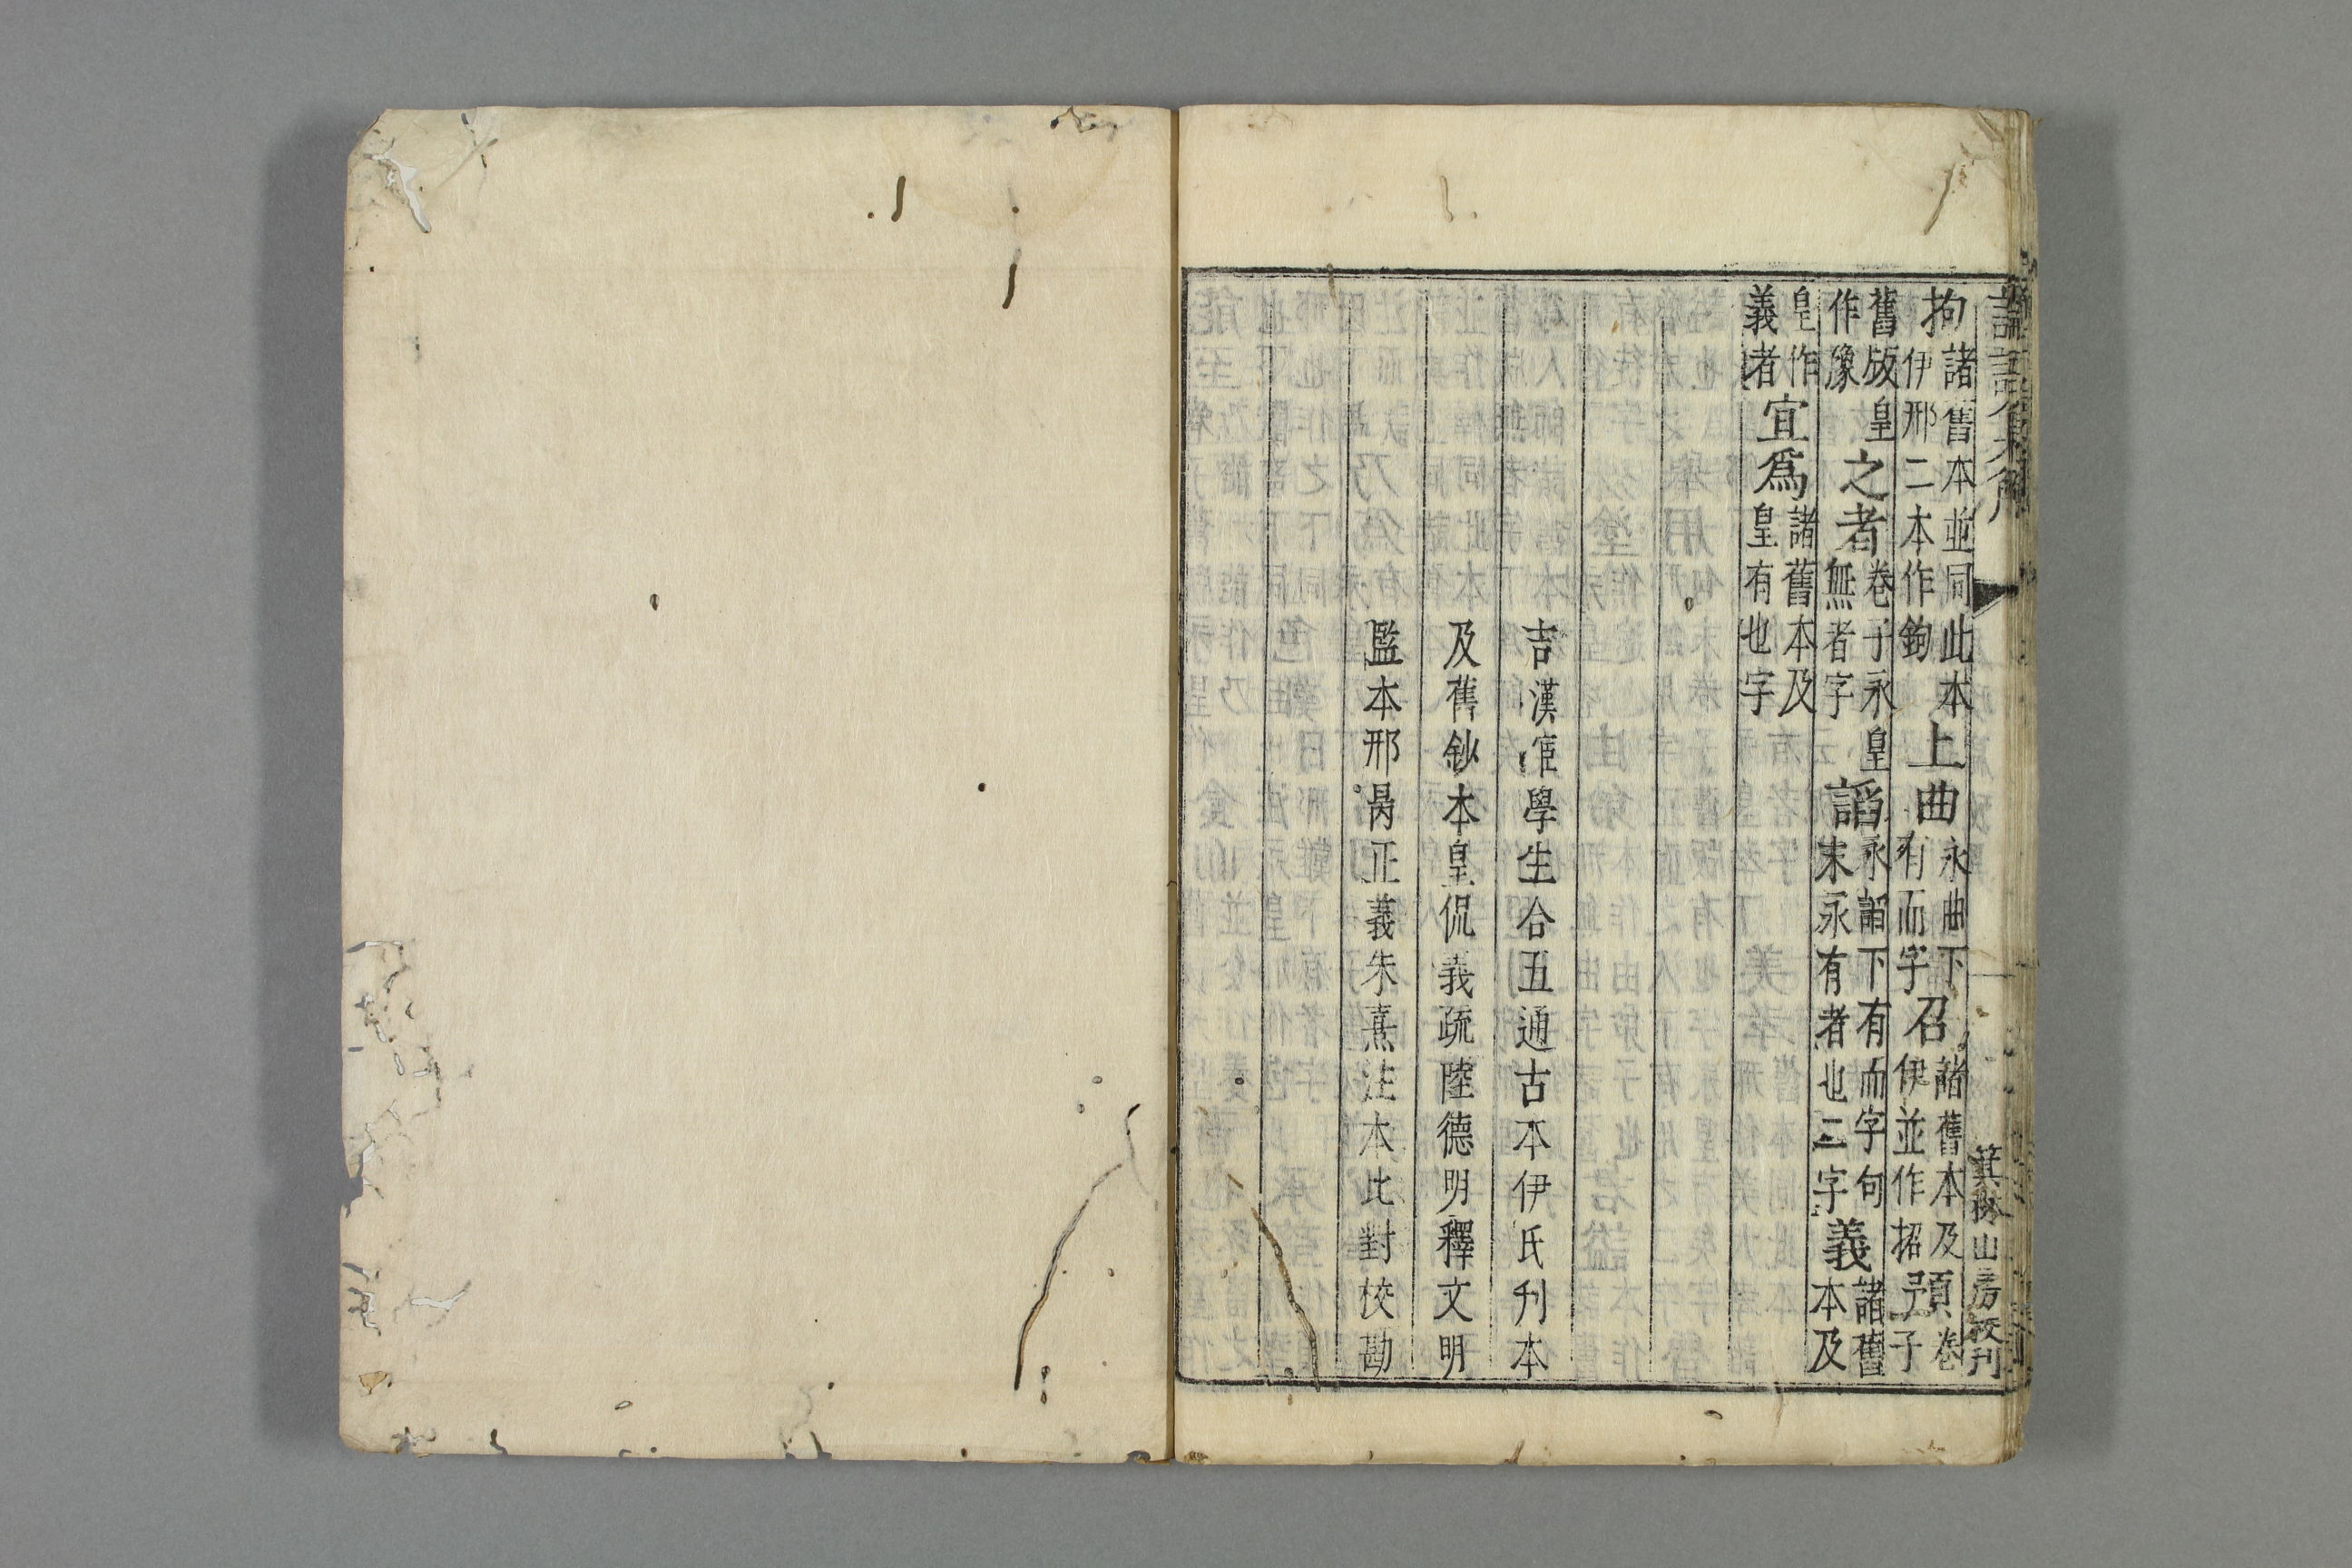 論語集解 箕林山房校刊
拘諸舊本並同此本伊邢二本作鉤上曲永曲下有而字召諸舊本及伊並作招預卷子
舊版皇作豫之者卷子永皇無者字謟永謟下有而字句末永有者也二字義諸舊本及
皇作義者宜爲諸舊本及皇有也字
吉漢宦學生合五通古本伊氏刊本
及舊鈔本皇侃義疏陸德明釋文明
監本邢昺正義朱熹注本比對校勘